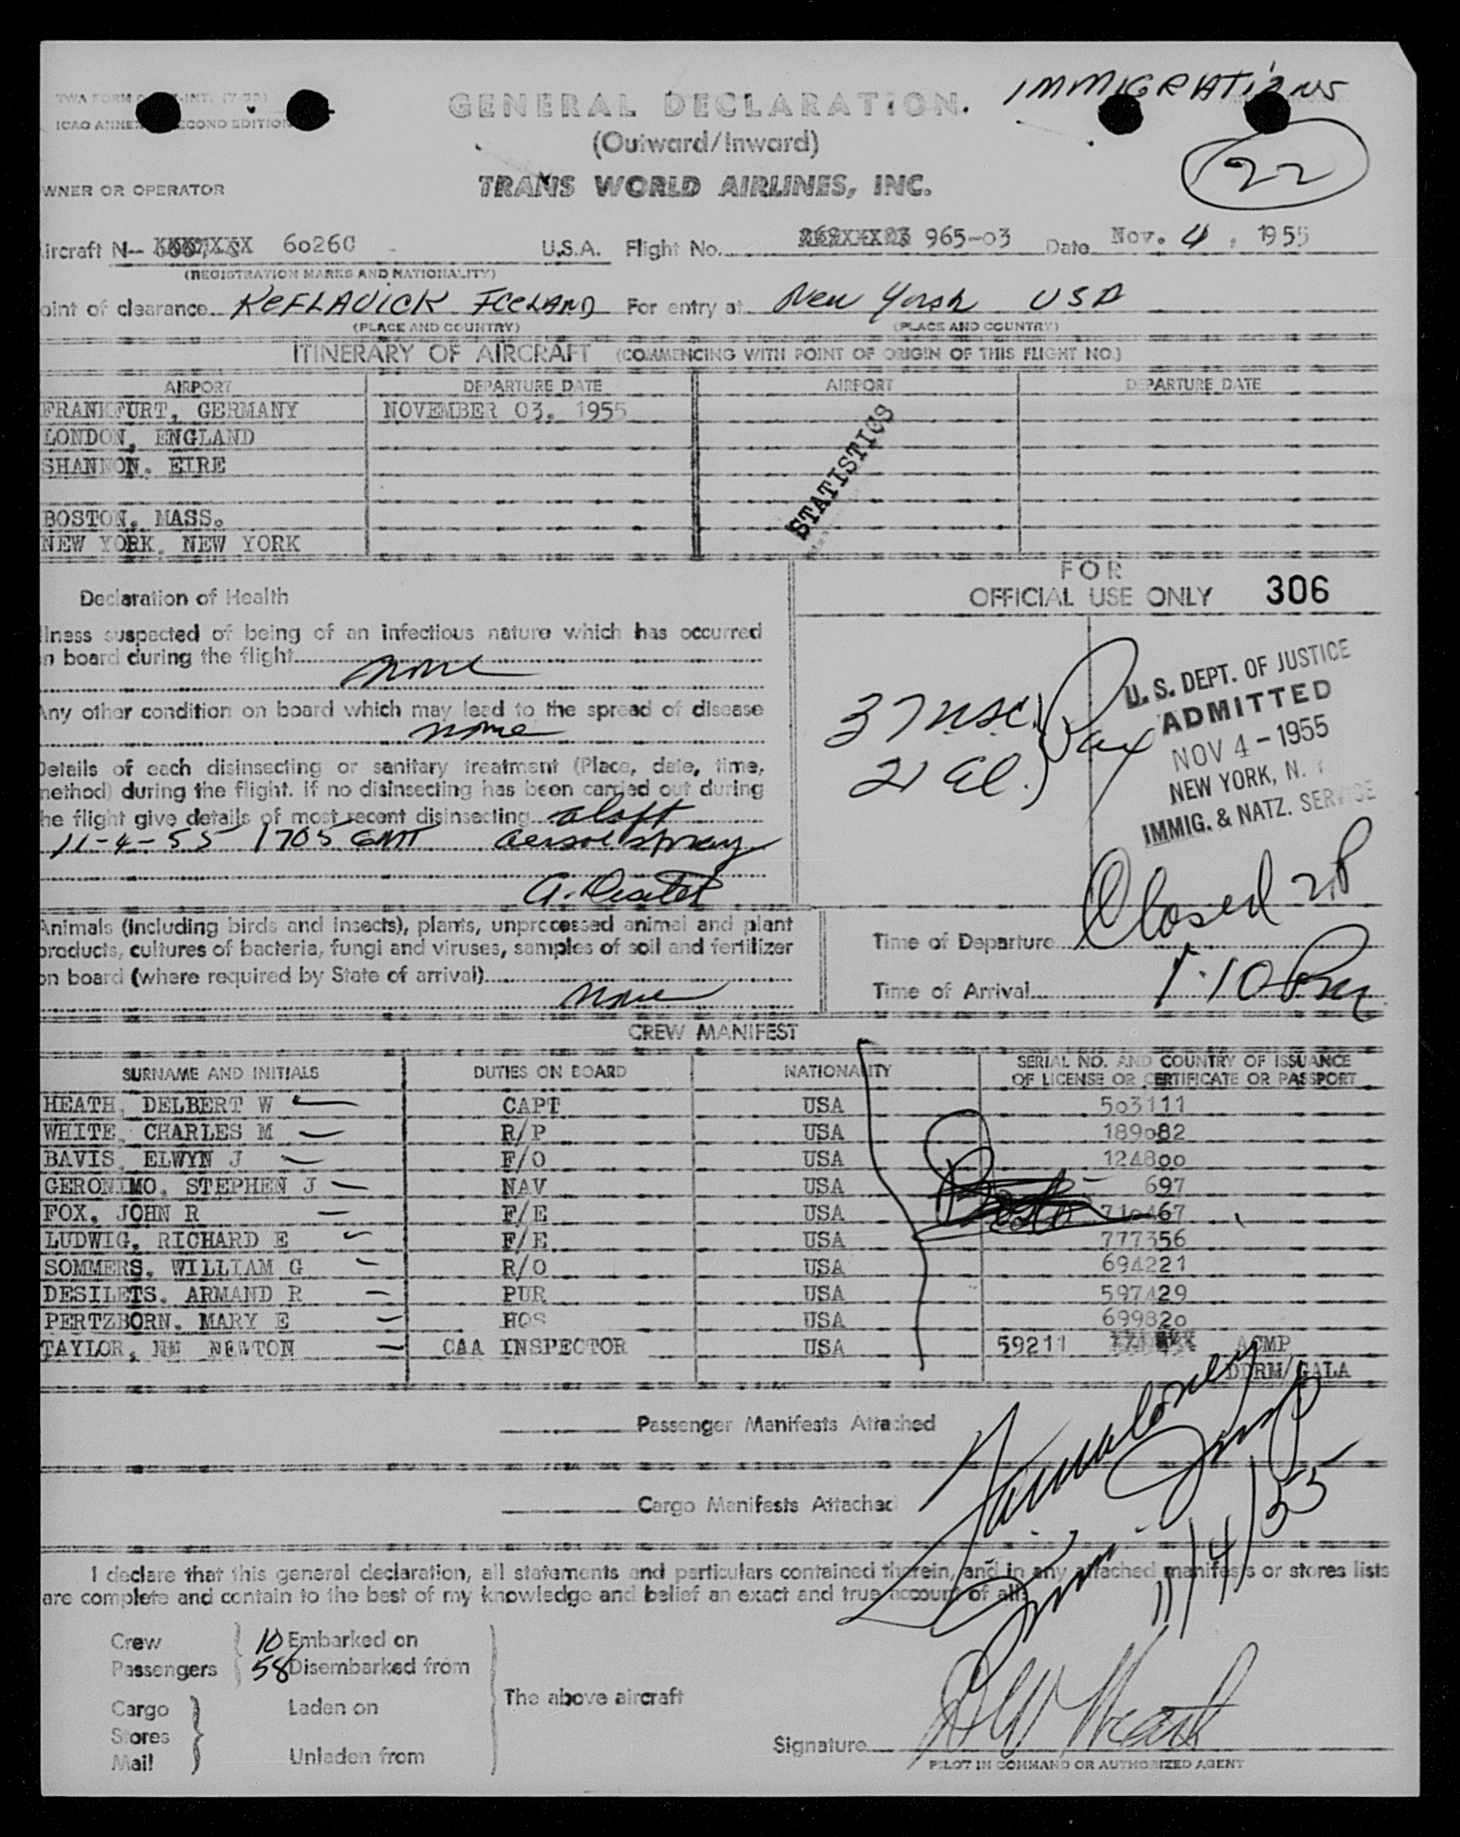 GENERAL DECLARATION. IMMIGRATIONS
(Outward/Inward)
22
WNER OR OPERATOR TRANS WORLD AIRLINES, INC.
ircraft N-- 6026C U.S.A. Flight No. 965-03 Date Nov. 4, 1955
(REGISTRATION MARKS AND NATIONALITY)
oint of clearance KEFLAVICK ICELAND For entry at New York USA
(PLACE AND COUNTRY) (PLACE AND COUNTRY)
ITINERARY OF AIRCRAFT (COMMENCING WITH POINT OF ORIGIN OF THIS FLIGHT NO.)
AIRPORT DEPARTURE DATE AIRPORT DEPARTURE DATE
FRANKFURT, GERMANY NOVEMBER 03, 1955
LONDON, ENGLAND
SHANNON, EIRE
STATISTICS
BOSTON, MASS.
NEW YORK, NEW YORK
FOR
OFFICIAL USE ONLY 306
Declaration of Health
llness suspected of being of an infectious nature which has occurred
n board during the flight none
Any other condition on board which may lead to the spread of disease
none
Details of each disinsecting or sanitary treatment (Place, date, time,
method) during the flight. If no disinsecting has been carried out during
he flight give details of most recent disinsecting aloft
11-4-55 1705 GMT aerosol spray
37 USC.) Pax
21 al.)
U. S. DEPT. OF JUSTICE
ADMITTED
NOV 4 - 1955
NEW YORK, N.
IMMIG. & NATZ. SERVICE
Closed 2P
Animals (including birds and insects), plants, unprocessed animal and plant
products, cultures of bacteria, fungi and viruses, samples of soil and fertilizer
on board (where required by State of arrival) none
Time of Departure
Time of Arrival 1:10 Pm
CREW MANIFEST
SURNAME AND INITIALS DUTIES ON BOARD NATIONALITY SERIAL NO. AND COUNTRY OF ISSUANCE
OF LICENSE OR CERTIFICATE OR PASSPORT
HEATH, DELBERT W CAPT USA 503111
WHITE, CHARLES M R/P USA 189082
BAVIS, ELWYN J F/O USA 124800
GERONIMO, STEPHEN J NAV USA 697
FOX, JOHN R F/E USA 710467
LUDWIG, RICHARD E F/E USA 777356
SOMMERS, WILLIAM G R/O USA 694221
DESILETS, ARMAND R PUR USA 597429
PERTZBORN, MARY E HOS USA 699820
TAYLOR, NM NEWTON CAA INSPECTOR USA 59211 ACMP
DDRM/GALA
Passenger Manifests Attached
Cargo Manifests Attached
11/4/55
I declare that this general declaration, all statements and particulars contained therein, and in any attached manifests or stores lists
are complete and contain to the best of my knowledge and belief an exact and true account of all:
Crew 10 Embarked on
Passengers 58 Disembarked from
Cargo Laden on The above aircraft
Stores
Mail Unladen from
Signature
PILOT IN COMMAND OR AUTHORIZED AGENT